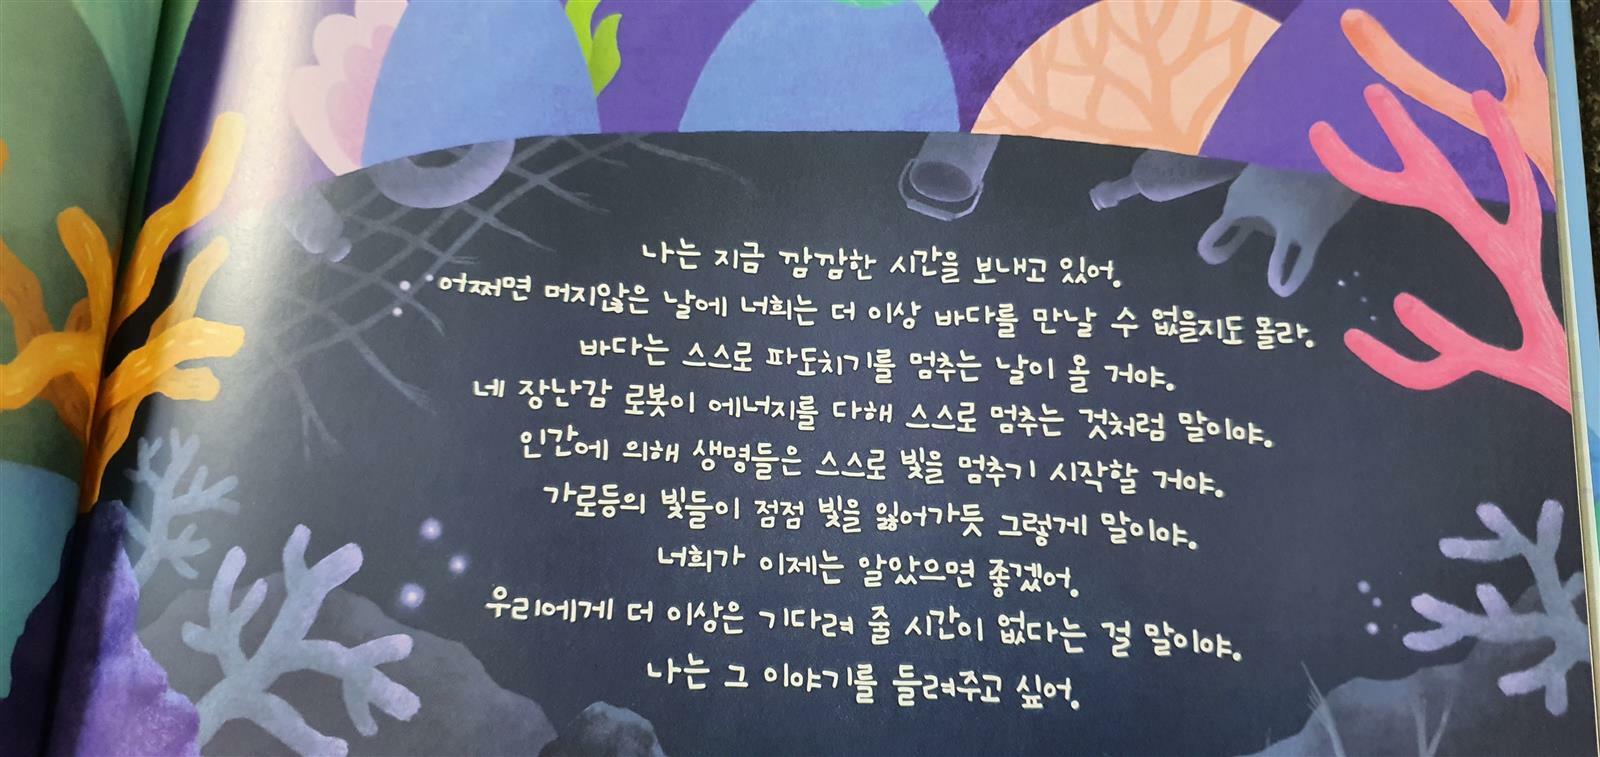 나는 지금 깜깜한 시간을 보내고 있어.
어쩌면 머지않은 날에 너희는 더 이상 바다를 만날 수 없을지도 몰라.
바다는 스스로 파도치기를 멈추는 날이 올 거야.
네 장난감 로봇이 에너지를 다해 스스로 멈추는 것처럼 말이야.
인간에 의해 생명들은 스스로 빛을 멈추기 시작할 거야.
가로등의 빛들이 점점 빛을 잃어가듯 그렇게 말이야.
너희가 이제는 알았으면 좋겠어.
우리에게 더 이상은 기다려 줄 시간이 없다는 걸 말이야.
나는 그 이야기를 들려주고 싶어.